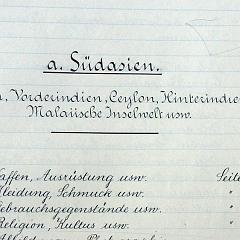 a. Südasien.
, Vorderindien, Ceylon, Hinterindie
Malaiische Inselwelt usw.
affen, Ausrüstung usw. Seite
leidung, Schmuck usw. "
ebrauchsgegenstände usw. "
eligion, Kultus usw. "